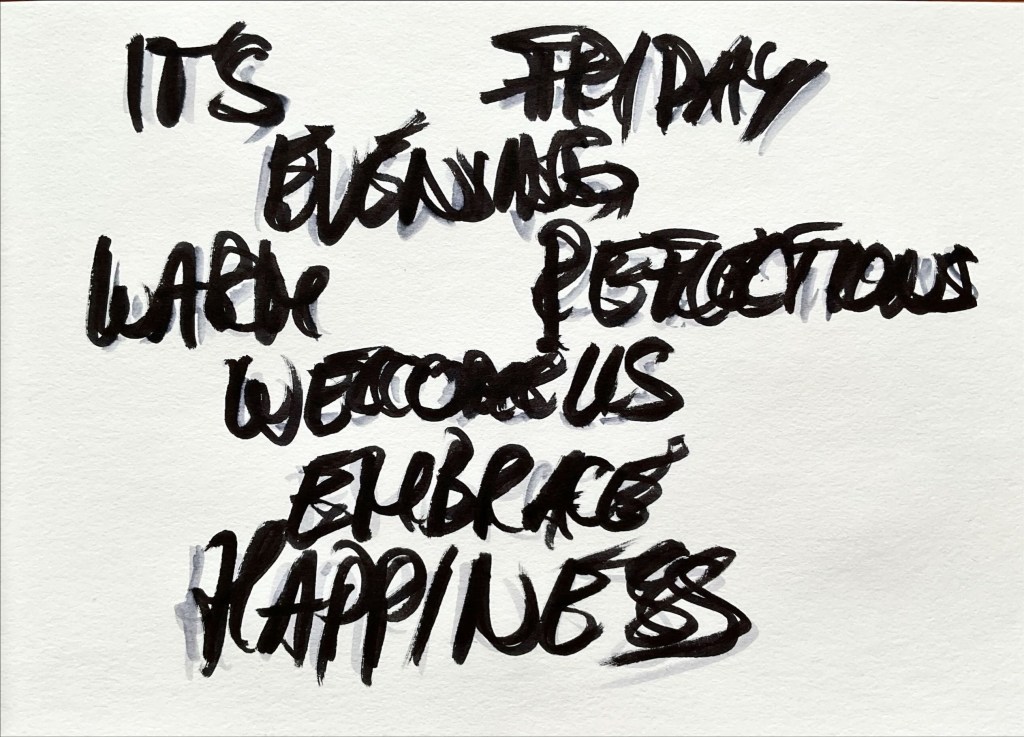 ITS FRIDAY
EVENING
WARM REFLECTIONS
WELCOME US
EMBRACE
HAPPINESS